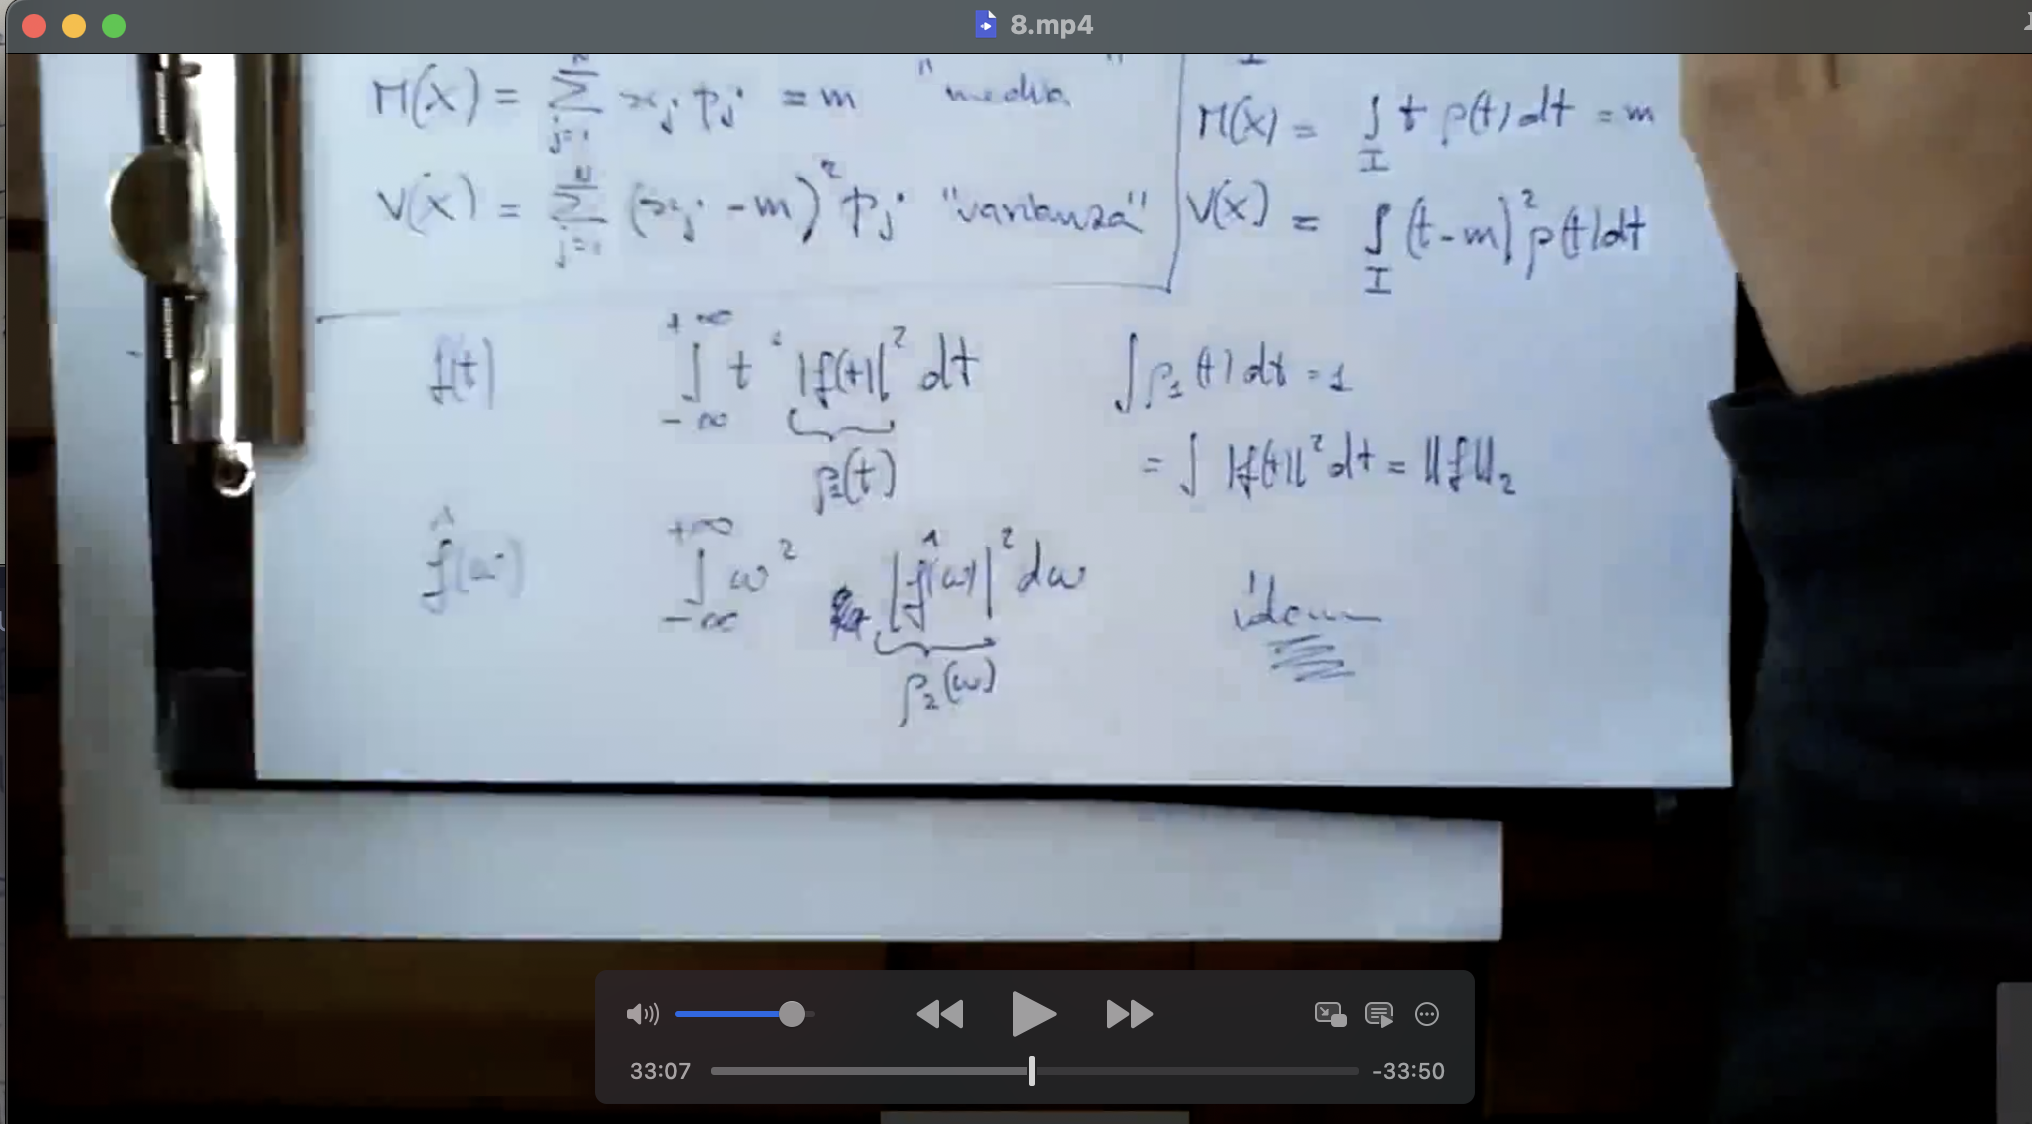 8.mp4
M(X) = ∑ j=1 n x_j p_j = m "media"
V(X) = ∑ j=1 n (x_j - m)² p_j "varianza"
I
M(X) = ∫_I t ρ(t) dt = m
V(X) = ∫_I (t-m)² ρ(t) dt
f(t) ∫_{-∞}^{+∞} t² |f(t)|² dt ∫ρ₁(t) dt = 1
ρ₁(t) = ∫ |f(t)|² dt = ||f||₂
f̂(ω) ∫_{-∞}^{+∞} ω² |f̂(ω)|² dω idem
ρ₂(ω)
33:07 -33:50